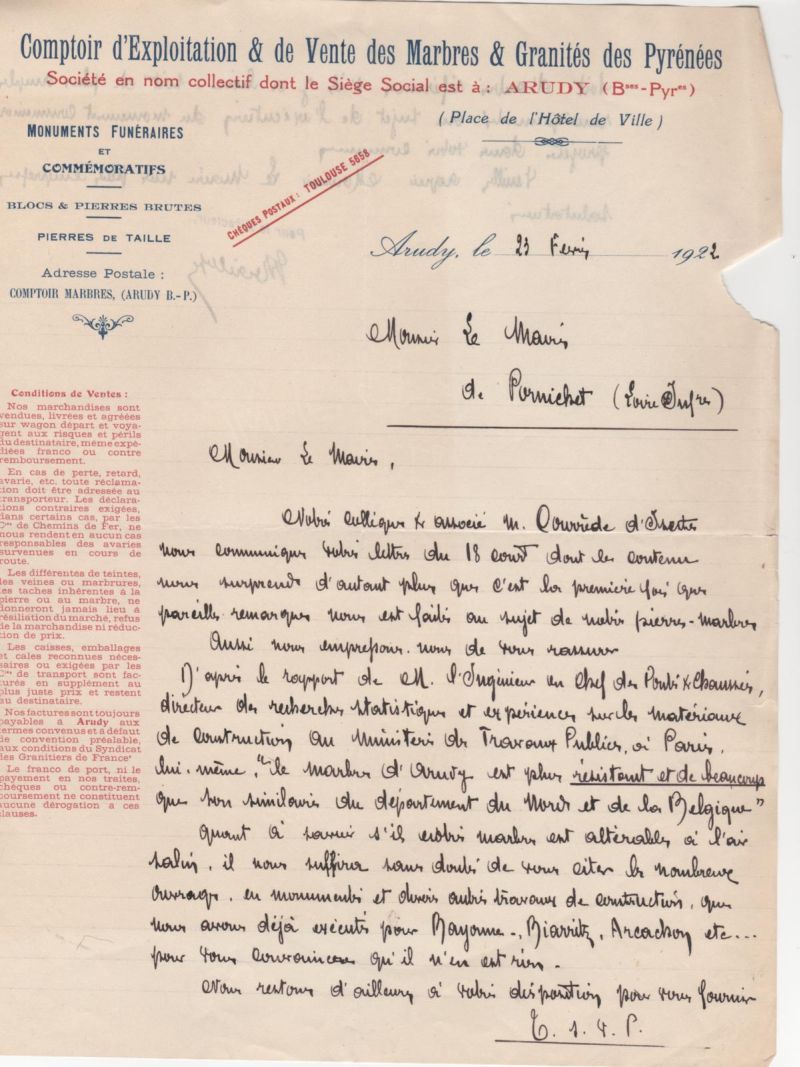 Comptoir d'Exploitation & de Vente des Marbres & Granités des Pyrénées
Société en nom collectif dont le Siège Social est à : ARUDY (Bses-Pyres)
( Place de l'Hôtel de Ville )
MONUMENTS FUNÉRAIRES
ET
COMMÉMORATIFS
BLOCS & PIERRES BRUTES
PIERRES DE TAILLE
Adresse Postale :
COMPTOIR MARBRES, (ARUDY B.-P.)
CHÈQUES POSTAUX : TOULOUSE 5658
Arudy, le 23 Févris 1922
Monsieur Le Maire
de Pornichet (Loire Infre)
Conditions de Ventes :
Nos marchandises sont
vendues, livrées et agréées
sur wagon départ et voya-
gent aux risques et périls
du destinataire, même expé-
diées franco ou contre
remboursement.
En cas de perte, retard,
avarie, etc. toute réclama-
tion doit être adressée au
transporteur. Les déclara-
tions contraires exigées,
dans certains cas, par les
Cies de Chemins de Fer, ne
nous rendent en aucun cas
responsables des avaries
survenues en cours de
route.
Les différentes de teintes,
les veines ou marbrures,
les taches inhérentes à la
pierre ou au marbre, ne
donneront jamais lieu à
résiliation du marché, refus
de la marchandise ni réduc-
tion de prix.
Les caisses, emballages
et cales reconnues néces-
saires ou exigées par les
Cies de transport sont fac-
turés en supplément au
plus juste prix et restent
au destinataire.
Nos factures sont toujours
payables à Arudy aux
termes convenus et à défaut
de convention préalable,
aux conditions du Syndicat
des Granitiers de France
Le franco de port, ni le
payement en nos traites,
chèques ou contre-rem-
boursement ne constituent
aucune dérogation à ces
clauses.
Monsieur Le Maire,
Notre collègue & associé M. d'Izeste
nous communique votre lettre du 18 court dont le contenu
nous surprend d'autant plus que c'est la première fois que
pareille remarque nous est faite au sujet de notre pierre-marbre
Aussi nous empressons-nous de vous rassurer
D'après le rapport de M. l'Ingénieur en Chef des Ponts & Chaussées,
directeur des recherches statistiques et expériences sur les matériaux
de construction au Ministère des Travaux Publics, à Paris,
lui-même, "le marbre d'Arudy est plus résistant et de beaucoup
que son similaire du département du Nord et de la Belgique"
Quant à savoir s'il notre marbre est altérable à l'air
salin, il nous suffira sans doute de vous citer les nombreux
ouvrages, en monuments et divers autres travaux de construction, que
nous avons déjà exécutés pour Bayonne, Biarritz, Arcachon etc...
pour vous convaincre qu'il n'en est rien.
Nous restons d'ailleurs à votre disposition pour vous fournir
T. S. V. P.